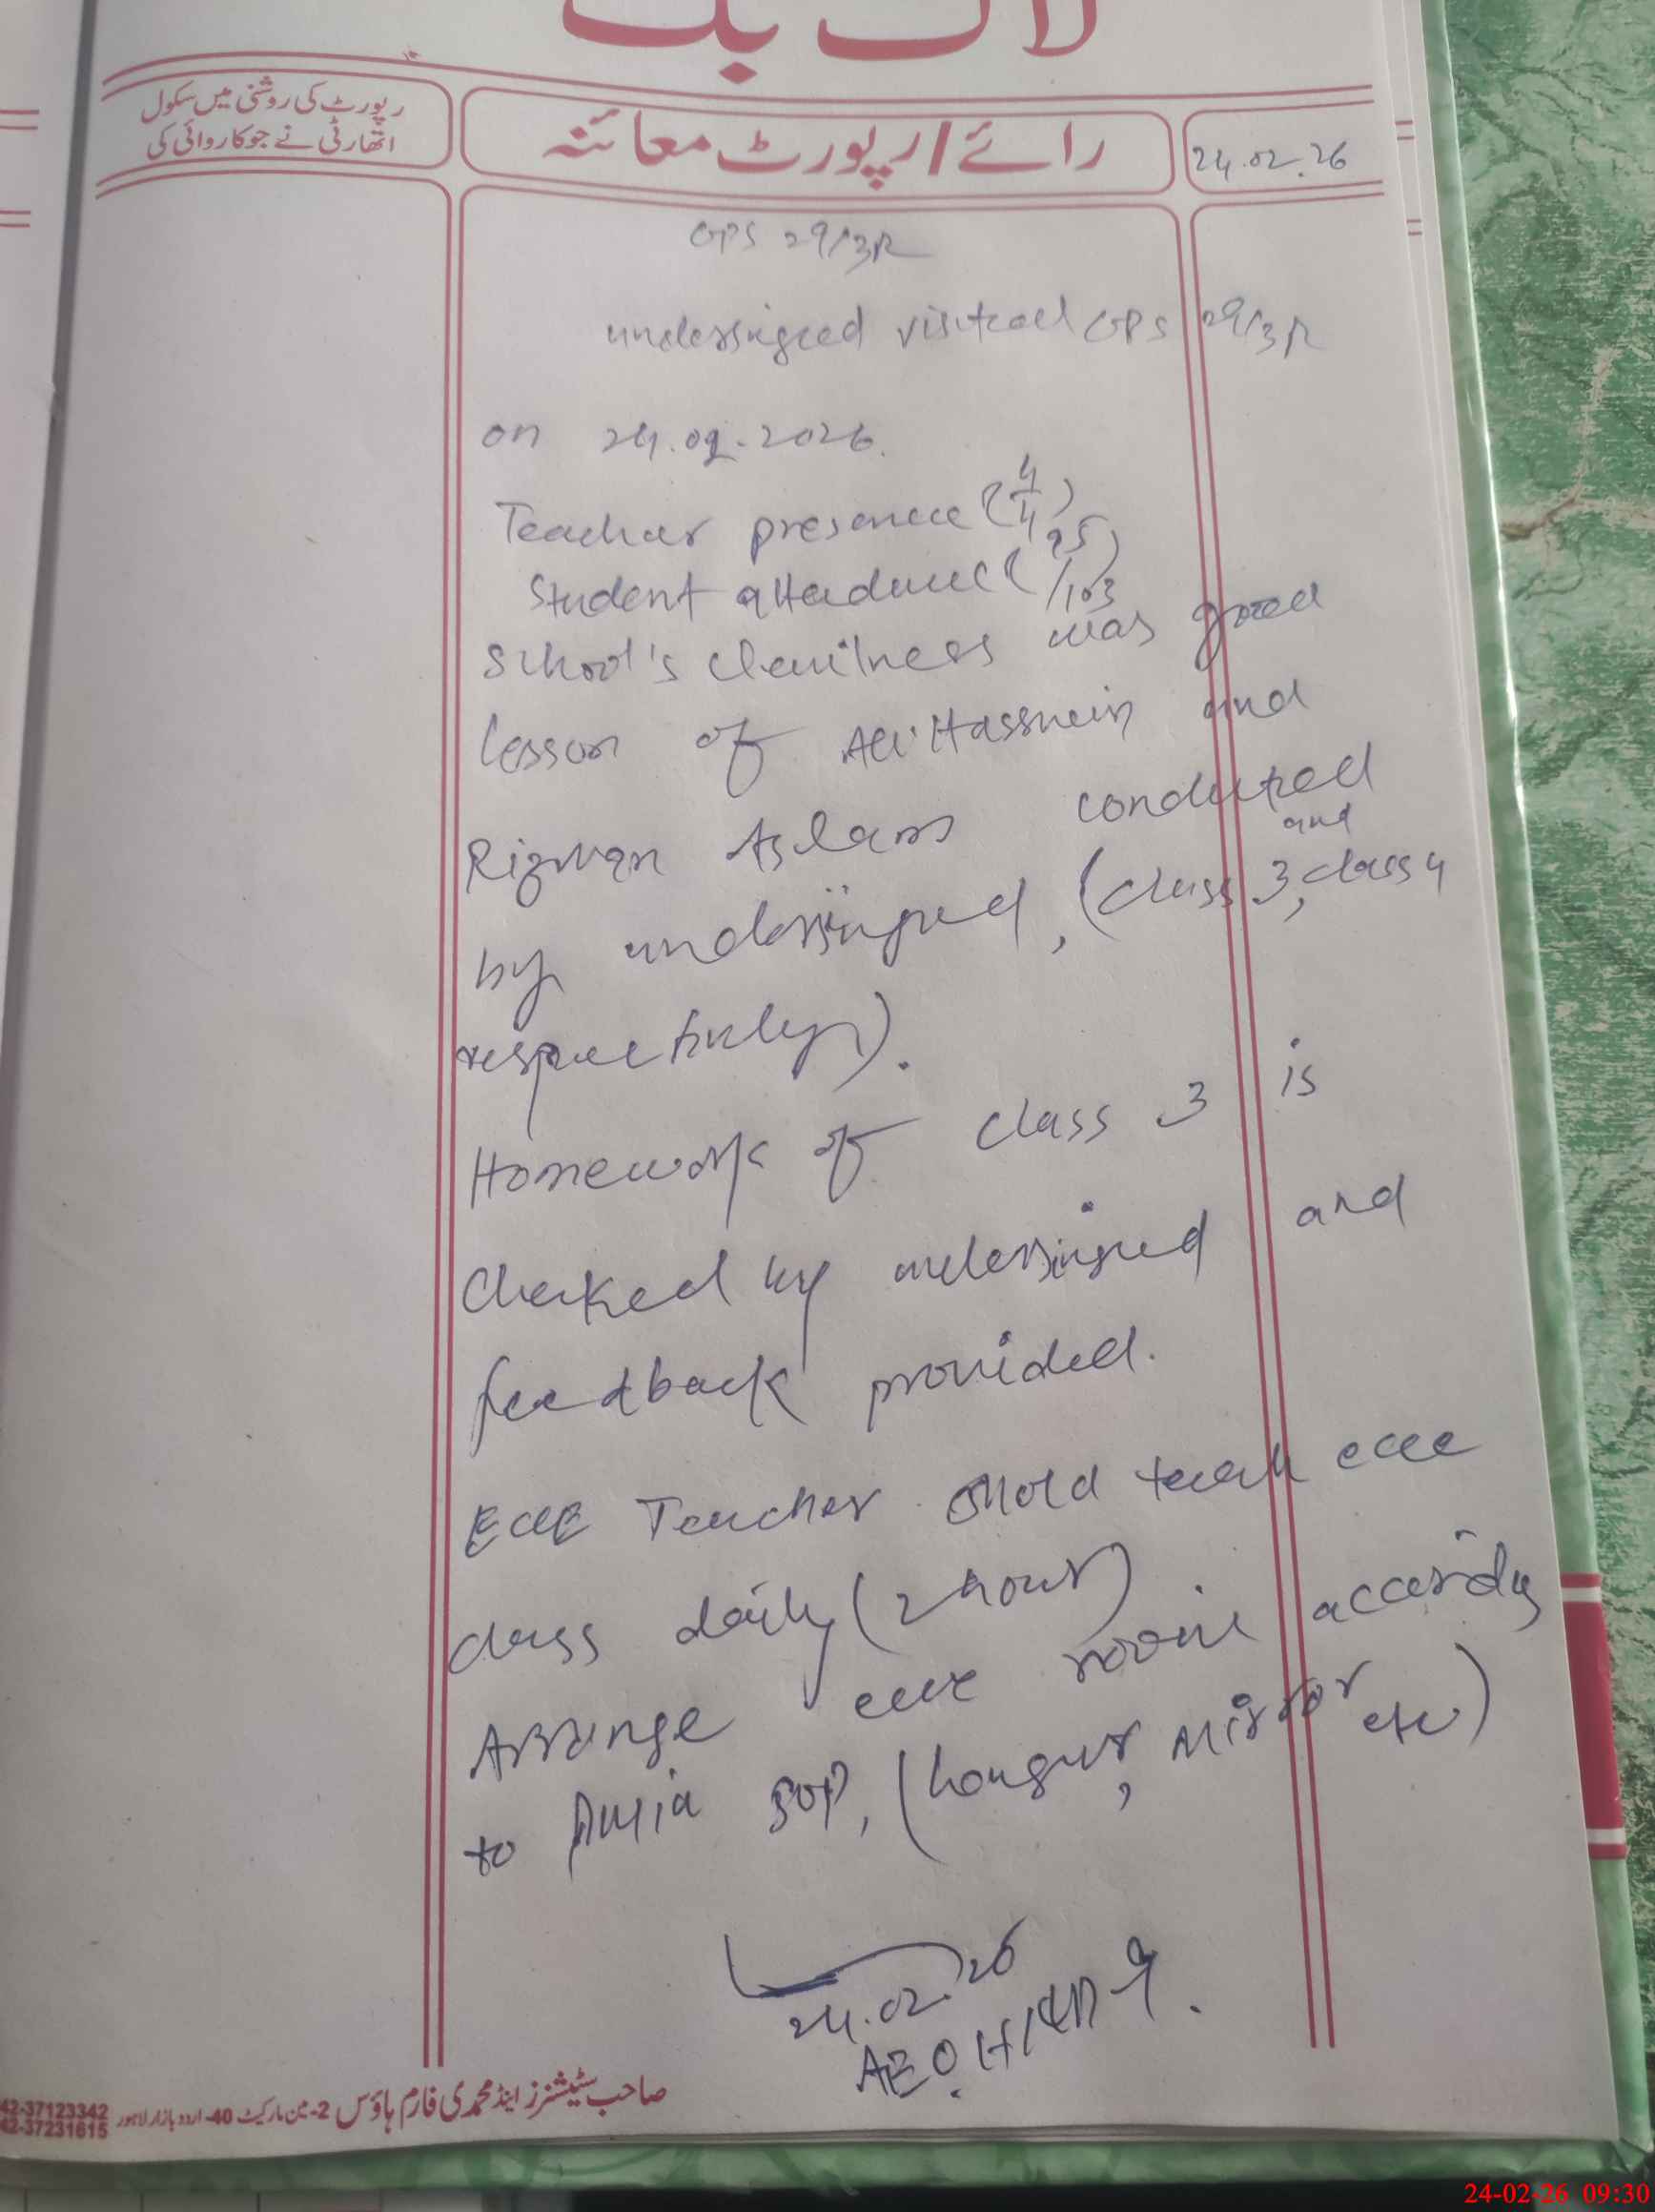 لاگ بک
رپورٹ کی روشنی میں سکول
اتھارٹی نے جو کاروائی کی
رائے/رپورٹ معائنہ
24.02.26
GPS 29/3R
undersigned visited GPS 29/3R
on 24.02.2026.
Teacher presence (4/4)
Student attendance (95/103)
School's cleanliness was good
lesson of Ali Hassnein and
Rizwan Aslam conducted
by undersigned, (class 3, and class 4
respectively).
Homework of class 3 is
Checked by undersigned and
feedback provided.
ECCE Teacher should teach ecce
class daily (2 hour)
Arrange ecce room according
to SOP, (hanger, Mirror etc)
24.02.26
AEO
صاحب سٹیشنرز اینڈ محمدی فارم ہاؤس 2-مین مارکیٹ 40-اردو بازار لاہور
42-37123342
42-37231615
24-02-26 09:30